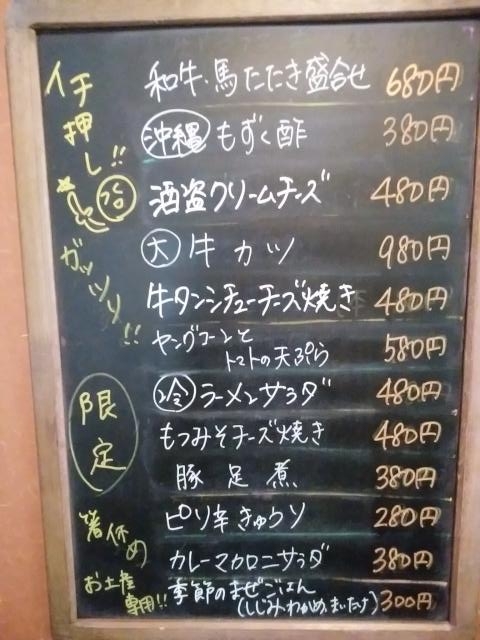 イチ押し!!
和牛・馬たたき盛合せ 680円
沖縄 もずく酢 380円
冷
酒盗クリームチーズ 480円
ガッツリ!!
大 牛カツ 980円
牛タンシチューチーズ焼き 480円
ヤングコーンと
トマトの天ぷら 580円
限定
冷 ラーメンサラダ 480円
もつみそチーズ焼き 480円
豚足煮 380円
箸休め
ピリ辛きゅうり 280円
カレーマカロニサラダ 380円
お土産
専用!!
季節のまぜごはん
(しじみ、わかめ、まいたけ) 300円